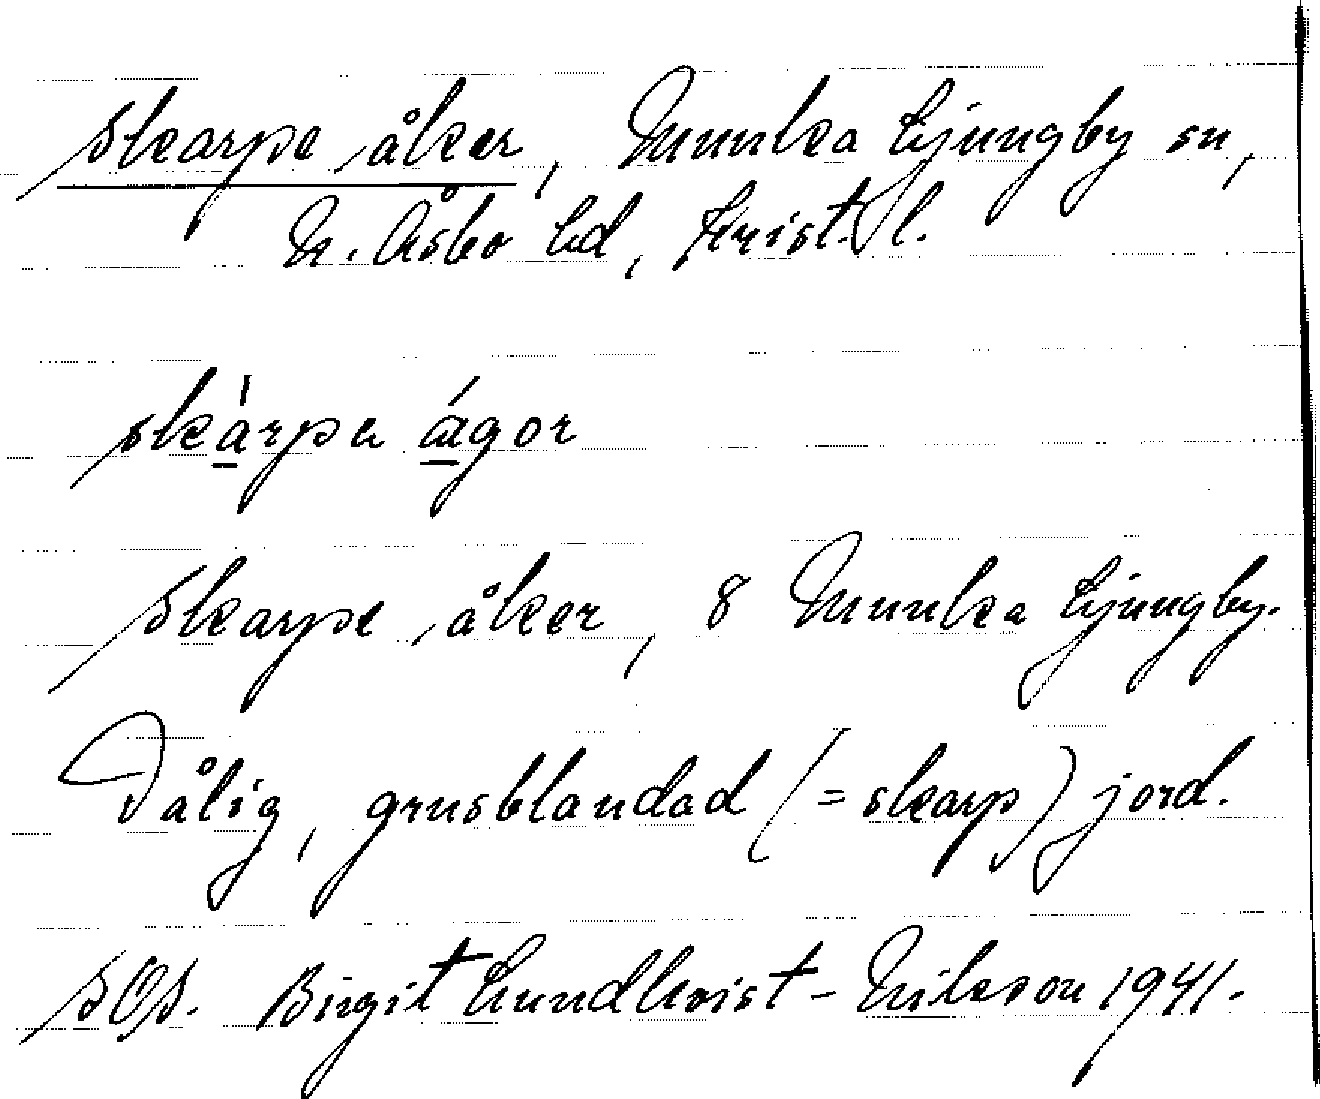 Skarpe åker, Munka Ljungby sn,
N. Åsbo hd, Krist. l.
skàrpa ágor
Skarpe åker, 8 Munka Ljungby.
Dålig, grusblandad (= skarp) jord.
SOS. Birgit Lundkvist-Nilsson 1941.